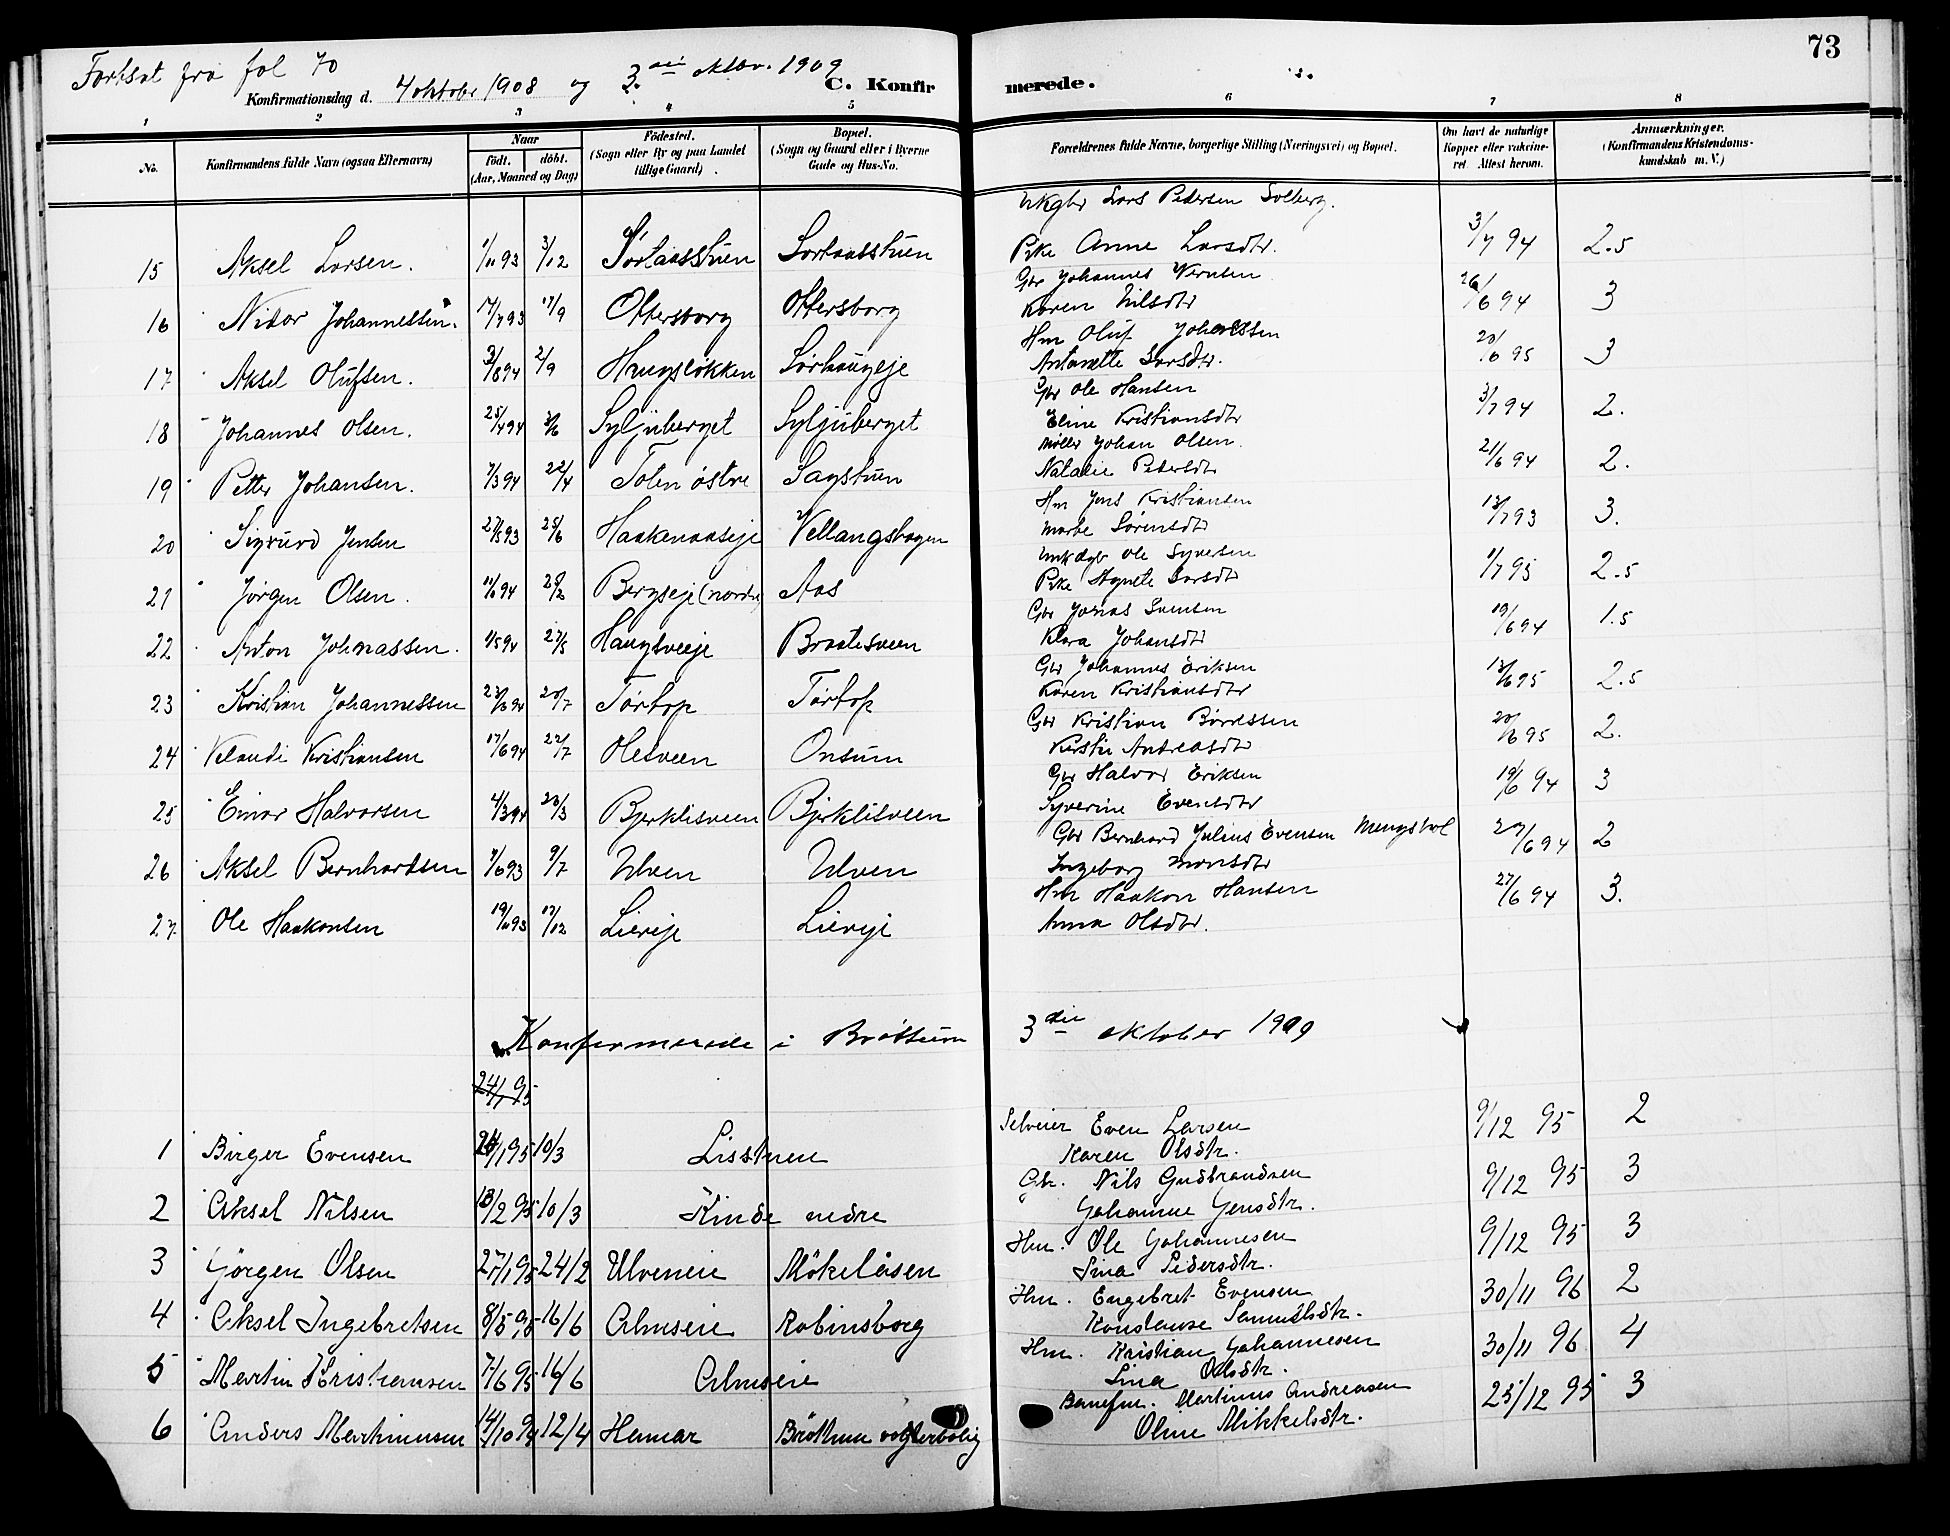 73
Fortsat fra fol 70
Konfirmationsdag d. 4 oktober 1908 og 3. oktbr. 1909
C. Konfirmerede.
1 2 3 4 5 6 7 8
No. Konfirmandens fulde Navn (ogsaa Efternavn) Naar født. døbt. (Aar, Maaned og Dag) Fødested. (Sogn eller By og paa Landet tillige Gaard) Bopæl. (Sogn og Gaard eller i Byerne Gade og Hus-No. Forældrenes fulde Navne, borgerlige Stilling (Næringsvei) og Bopæl. Om havt de naturlige Kopper eller vakcineret. Attest herom. Anmærkninger. (Konfirmandens Kristendomskundskab m. V.)
Lars Pedersen Solberg.
15 Aksel Larsen. 1/11 93 3/12 Sørlaasstuen Sørlaasstuen Pike Anne Larsdtr. 3/7 94 2.5
Gbr Johannes
16 Nikor Johannessen. 17/7 93 17/9 Ottersborg Ottersborg Karen Nilsdtr 26/6 94 3
Hm Oluf Johanssen
17 Aksel Olufsen. 3/8 94 2/9 Haugsløkken Sørhaugeje Antonette Larsdtr. 20/6 95 3
Gbr Ole Hansen
18 Johannes Olsen. 25/4 94 3/6 Syljuberget Syljuberget Eline Kristiansdtr 3/7 94 2.
Møller Johan Olsen.
19 Petter Johansen. 7/3 94 22/4 Toten østre Sagstuen Natalie Pedersdtr 21/6 94 2.
Hm Jens Kristiansen
20 Sigurd Jensen 27/5 93 25/6 Haakenaaseje Vellangshagen Marte Sørensdtr 13/7 93 3.
Ole Syversen
21 Jørgen Olsen. 11/1 94 25/2 Bergseje (nordre) Aas Pike Agnete Larsdtr 1/7 95 2.5
Gbr Jonas Svensen
22 Anton Johnassen. 1/5 94 27/5 Haugsveeje Braatesveen Klara Johansdtr 19/6 94 1.5
Gbr Johannes Eriksen
23 Kristian Johannessen 23/6 94 20/7 Tørtop Tørtop Karen Kristiansdtr 13/6 95 2.5
Gbr Kristian Børressen
24 Velaudi Kristiansen 17/6 94 22/7 Olesveen Onsum Kirstie Andreasdtr 20/6 95 2.
Gbr Halvor Eriksen
25 Einar Halvorsen 4/3 94 23/3 Bjerklisveen Bjerklisveen Syverine Evensdtr 19/6 94 3
Gbr Bernhard Julius Evensen Mengshol
26 Aksel Bernhardsen 7/6 93 9/7 Ulven Ulven Ingeborg Monsdtr 27/6 94 2
Hm Haakon Hansen
27. Ole Haakonsen 19/11 93 17/12 Lieeje Lieeje Anna Olsdtr. 27/6 94 3.
Konfirmerede i Brøttum 3die oktober 1909
24/1 95
Selveier Even Larsen
1 Birger Evensen 24/1 95 10/3 Lisstuen Karen Olsdtr. 9/12 95 2
Gbr. Nils Gudbrandsen
2 Aksel Nilsen 13/2 95 10/3 Kinde nedre Johanne Jensdtr. 9/12 95 3
Hm. Ole Johannesen
3 Jørgen Olsen 27/1 95 24/2 Ulveneie Møkelåsen Sina Pedersdtr. 9/12 95 3
Hm. Engebret Evensen
4 Aksel Ingebretsen 8/5 95 16/6 Almseie Robinsborg Konstanse Samuelsdtr. 30/11 96 2
Hm. Kristian Johannesen
5 Martin Kristiansen 7/6 95 16/6 Almseie Lina Olsdtr. 30/11 96 4
Banefm. Martinus Andreasen
6 Anders Martinusen 14/10 94 12/4 Hamar Brøttum vogterbolig Oline Mikkelsdtr. 25/12 95 3